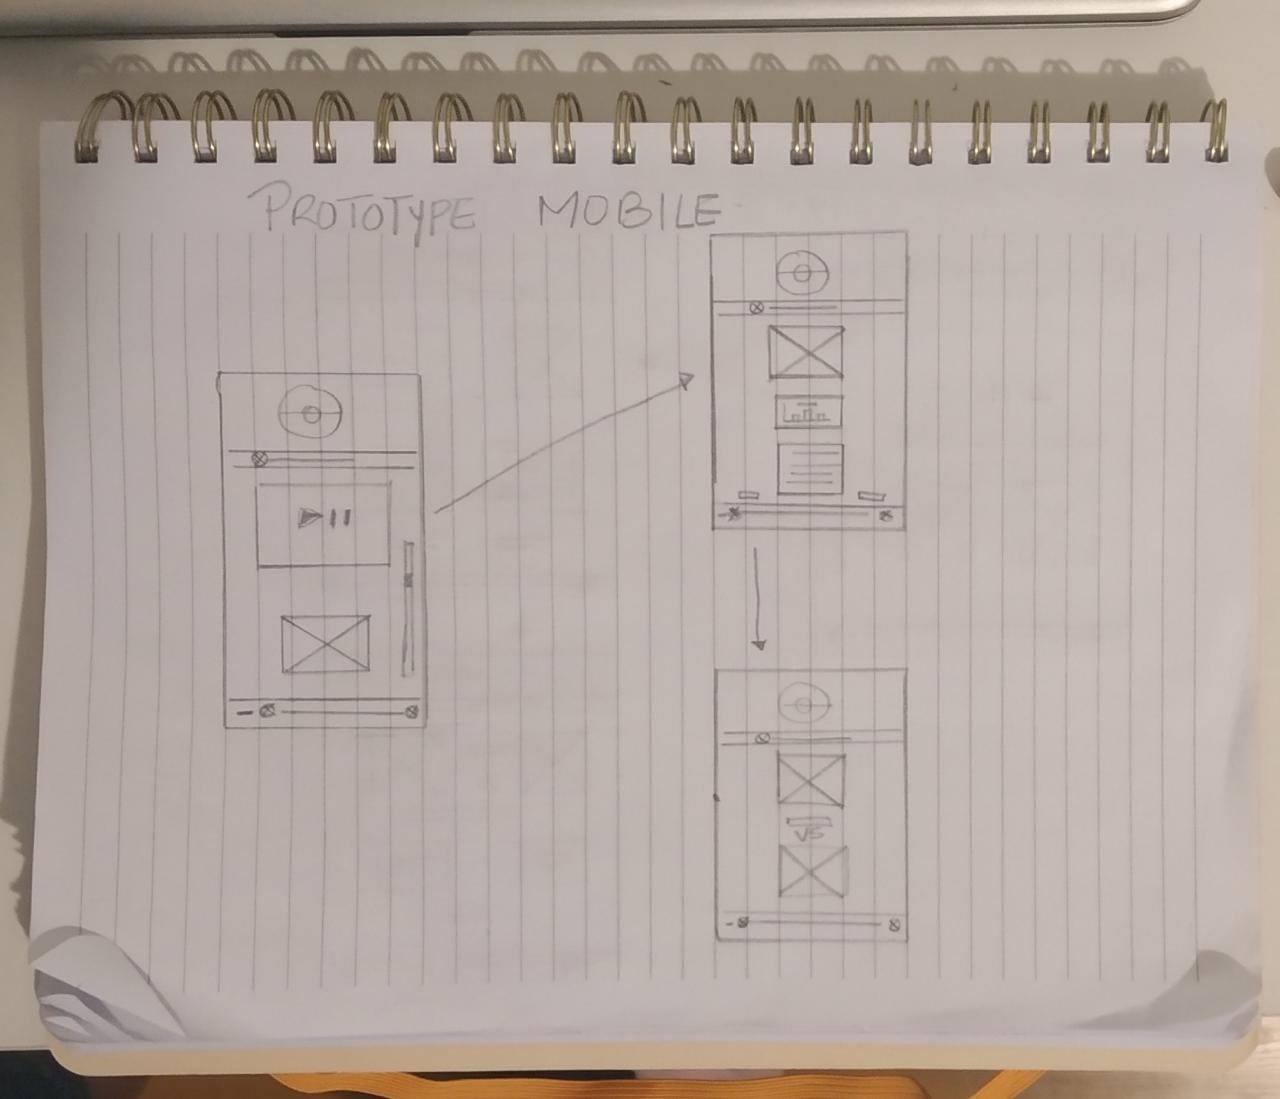 PROTOTYPE MOBILE
VS